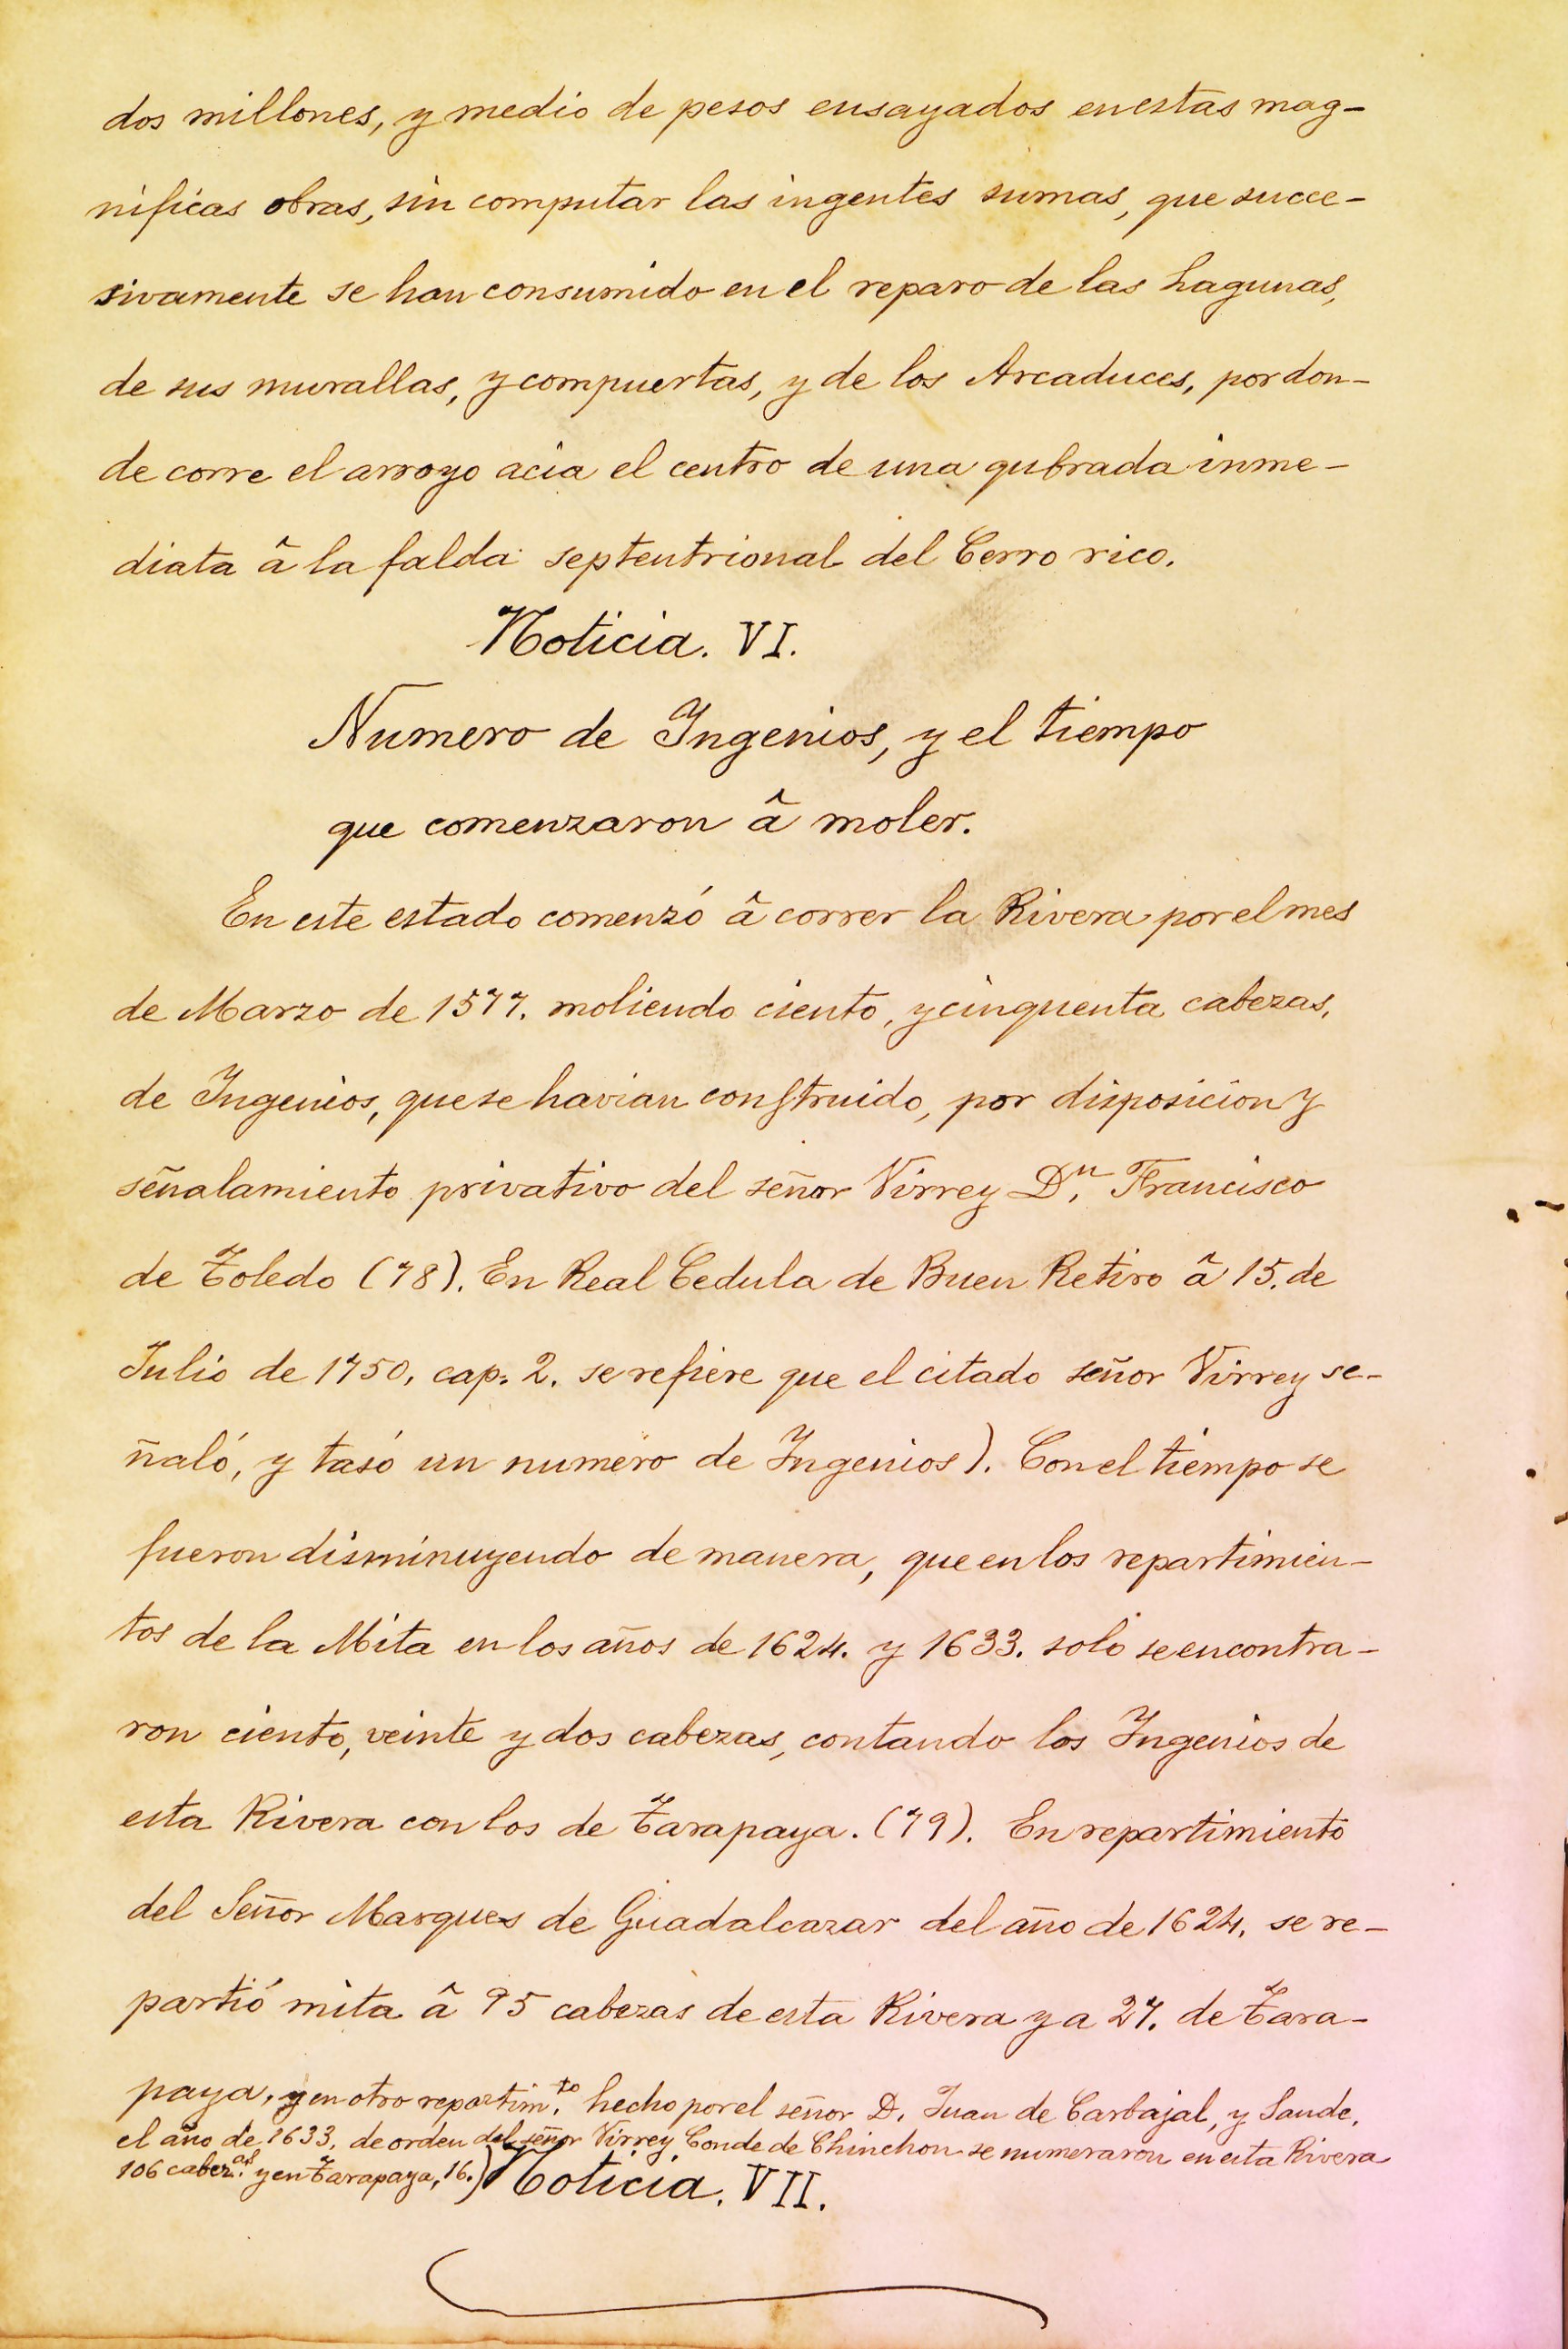 dos millones, y medio de pesos ensayados en estas mag-
nificas obras, sin computar las ingentes sumas, que succe-
sivamente se han consumido en el reparo de las Lagunas,
de sus murallas, y compuertas, y de los Arcaduces, por don-
de corre el arroyo acia el centro de una qubrada inme-
diata â la falda septentrional del Cerro rico.
Noticia. VI.
Numero de Ingenios, y el tiempo
que comenzaron â moler.
En este estado comenzó â correr la Rivera por el mes
de Marzo de 1577. moliendo ciento, y cinquenta cabezas,
de Ingenios, que se havian construido, por disposicion y
señalamiento privativo del señor Virrey Dn. Francisco
de Toledo (78). En Real Cedula de Buen Retiro â 15. de
Julio de 1750, cap. 2. se refiere que el citado señor Virrey se-
ñaló, y tasó un numero de Ingenios). Con el tiempo se
fueron disminuyendo de manera, que en los repartimien-
tos de la Mita en los años de 1624. y 1633. solo se encontra-
ron ciento, veinte y dos cabezas, contando los Ingenios de
esta Rivera con los de Tarapaya. (79). En repartimiento
del Señor Marques de Guadalcazar del año de 1624, se re-
partió mita â 95 cabezas de esta Rivera y a 27. de Tara-
paya, y en otro repartim.to hecho por el señor D. Juan de Carbajal, y Sande,
el año de 1633. de orden del señor Virrey Conde de Chinchon se numeraron en esta Rivera
106 cabez.as y en Tarapaya, 16.)
Noticia. VII.